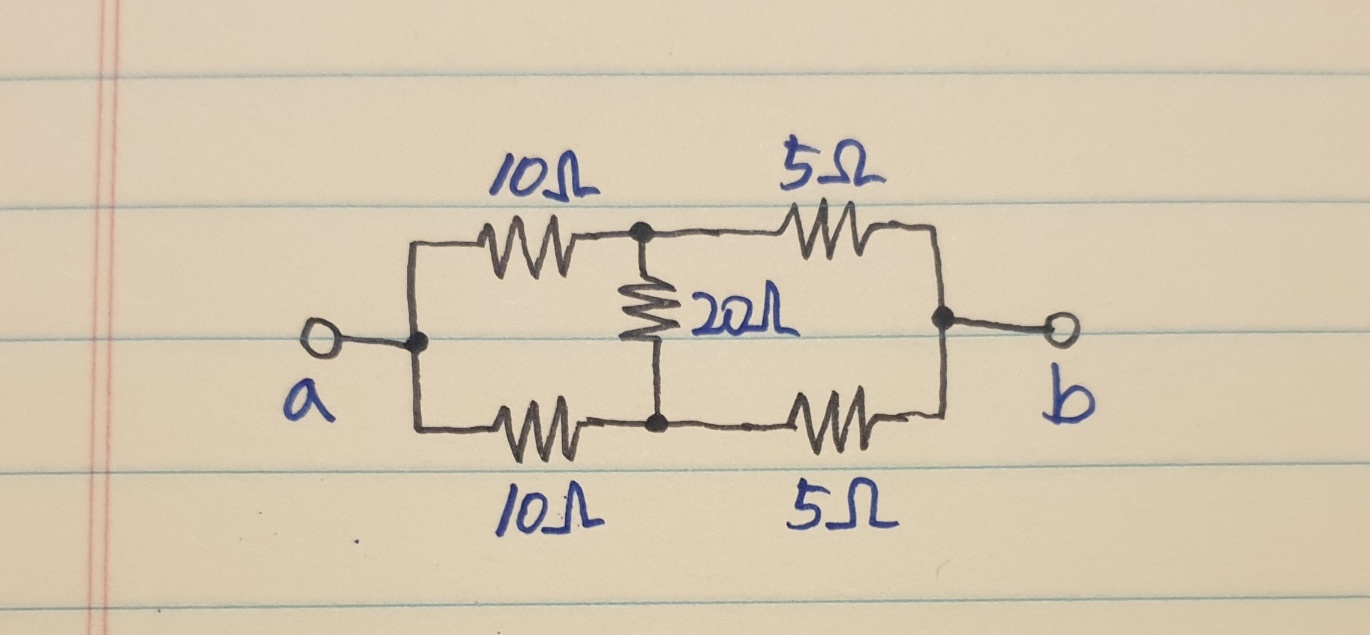 10Ω 5Ω
20Ω
a b
10Ω 5Ω